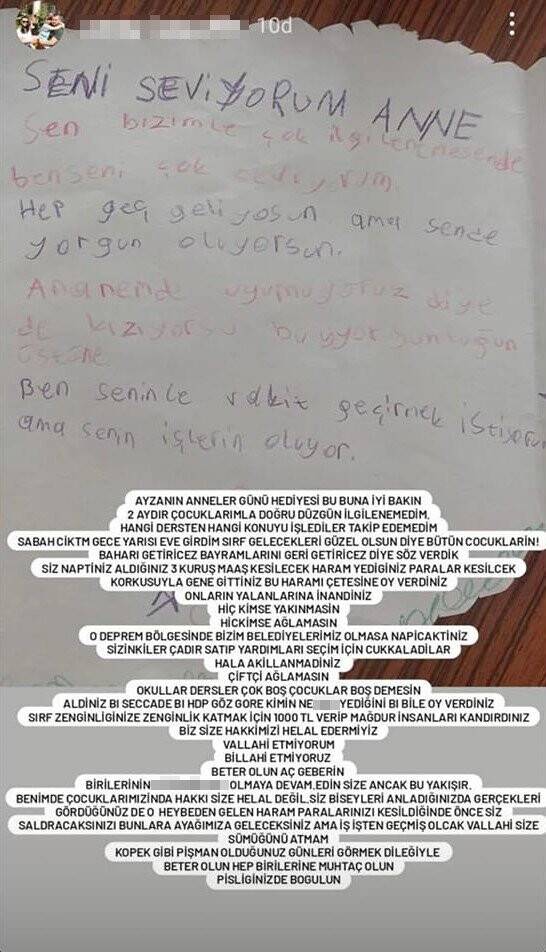 10d
SENİ SEVİYORUM ANNE
Sen bizimle çok ilgilenmesende
benseni çok seviyrım.
Hep geç geliyosun ama sende
yorgun oluyorsun.
Ananemde uyumuyoruz diye
de kızıyorsu bu yorgunluğun
üstüne
Ben seninle vakit geçirmek istiyorum
ama senin işlerin oluyor.
AYZANIN ANNELER GÜNÜ HEDİYESİ BU BUNA İYİ BAKIN
2 AYDIR ÇOCUKLARIMLA DOĞRU DÜZGÜN İLGİLENEMEDİM,
HANGİ DERSTEN HANGİ KONUYU İŞLEDİLER TAKİP EDEMEDİM
SABAH CİKTM GECE YARISI EVE GİRDİM SIRF GELECEKLERİ GÜZEL OLSUN DİYE BÜTÜN COCUKLARIN!
BAHARI GETİRİCEZ BAYRAMLARINI GERİ GETİRİCEZ DİYE SÖZ VERDİK
SİZ NAPTİNİZ ALDIĞINIZ 3 KURUŞ MAAŞ KESİLECEK HARAM YEDİGİNİZ PARALAR KESİLCEK
KORKUSUYLA GENE GİTTİNİZ BU HARAMİ ÇETESİNE OY VERDİNİZ
ONLARIN YALANLARINA İNANDİNİZ
HİÇ KİMSE YAKINMASIN
HİCKİMSE AĞLAMASIN
O DEPREM BÖLGESİNDE BİZİM BELEDİYELERİMİZ OLMASA NAPİCAKTİNİZ
SİZİNKİLER ÇADIR SATIP YARDIMLARI SEÇİM İÇİN CUKKALADİLAR
HALA AKİLLANMADİNİZ
ÇİFTÇİ AĞLAMASIN
OKULLAR DERSLER ÇOK BOŞ ÇOCUKLAR BOŞ DEMESİN
ALDİNİZ BI SECCADE BI HDP GÖZ GORE KİMİN NE YEDİĞİNİ BI BİLE OY VERDİNİZ
SIRF ZENGİNLİGİNİZE ZENGİNLİK KATMAK İÇİN 1000 TL VERİP MAĞDUR İNSANLARI KANDIRDINIZ
BİZ SİZE HAKKİMİZİ HELAL EDERMİYİZ
VALLAHİ ETMİYORUM
BİLLAHİ ETMİYORUZ
BETER OLUN AÇ GEBERİN
BİRİLERİNİN OLMAYA DEVAM,EDİN SİZE ANCAK BU YAKIŞIR.
BENİMDE ÇOCUKLARIMIZINDA HAKKI SİZE HELAL DEĞİL.SİZ BİSEYLERİ ANLADIĞINIZDA GERÇEKLERİ
GÖRDÜĞÜNÜZ DE O HEYBEDEN GELEN HARAM PARALARINIZI KESİLDİĞİNDE ÖNCE SİZ
SALDRACAKSINIZI BUNLARA AYAĞIMIZA GELECEKSİNİZ AMA İŞ İŞTEN GEÇMİŞ OLCAK VALLAHİ SİZE
SÜMÜĞÜNÜ ATMAM
KOPEK GİBİ PİŞMAN OLDUĞUNUZ GÜNLERİ GÖRMEK DİLEĞİYLE
BETER OLUN HEP BİRİLERİNE MUHTAÇ OLUN
PISLİGİNİZDE BOGULUN